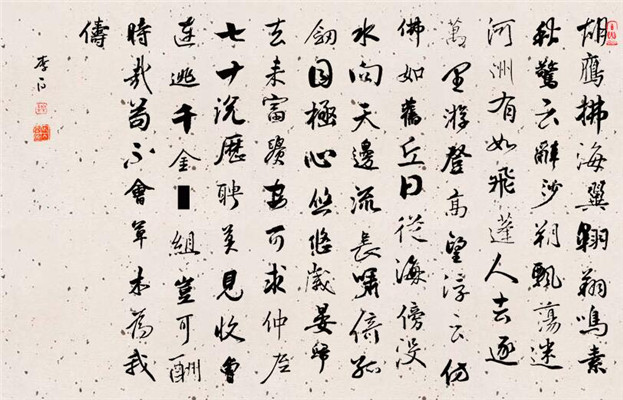 胡鷹拂海翼翱翔鳴素
秋驚云辭沙朔飄蕩迷
河洲有如飛蓬人去逐
萬里游登高望浮云仿
佛如舊丘日從海傍沒
水向天邊流長嘯倚孤
劒目極心悠悠歲晏歸
去来富貴安可求仲尼
七十說歷聘莫見收魯
連逃千金組豈可酬
時哉苟不會草木為我
儔
李白